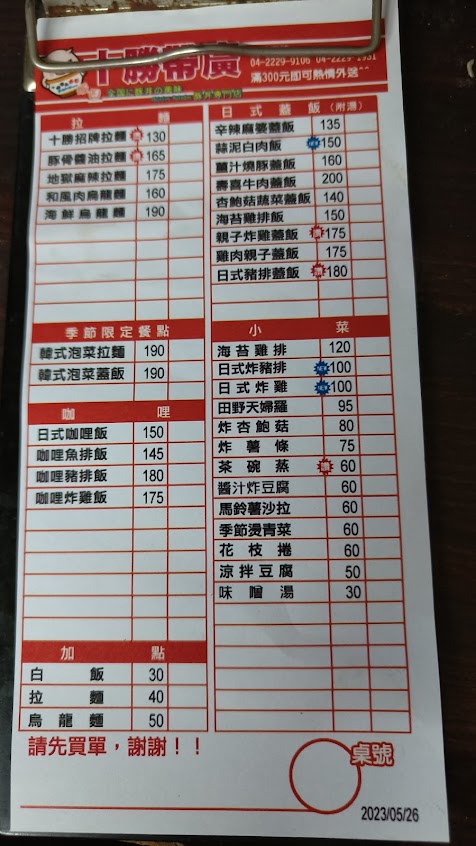 十勝帶廣
04-2229-9106 04-2229-2931
滿300元即可熱情外送
拉 麵
十勝招牌拉麵 讚 130
豚骨醬油拉麵 讚 165
地獄麻辣拉麵 175
和風肉烏龍麵 160
海鮮烏龍麵 190
季節限定餐點
韓式泡菜拉麵 190
韓式泡菜蓋飯 190
咖 哩
日式咖哩飯 150
咖哩魚排飯 145
咖哩豬排飯 180
咖哩炸雞飯 175
加 點
白飯 30
拉麵 40
烏龍麵 50
日式蓋飯(附湯)
辛辣麻婆蓋飯 135
蒜泥白肉飯 150
薑汁燒豚蓋飯 160
壽喜牛肉蓋飯 200
杏鮑菇蔬菜蓋飯 140
海苔雞排飯 150
親子炸雞蓋飯 讚 175
雞肉親子蓋飯 175
日式豬排蓋飯 讚 180
小 菜
海苔雞排 120
日式炸豬排 100
日式炸雞 100
田野天婦羅 95
炸杏鮑菇 80
炸薯條 75
茶碗蒸 讚 60
醬汁炸豆腐 60
馬鈴薯沙拉 60
季節燙青菜 60
花枝捲 60
涼拌豆腐 50
味噌湯 30
請先買單，謝謝！！
桌號
2023/05/26